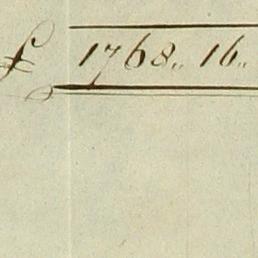 £ 1768.. 16..